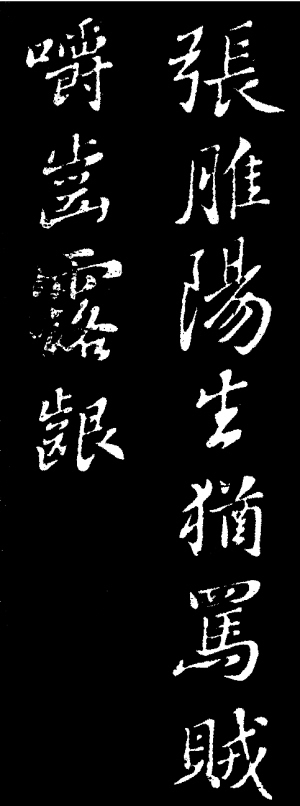 張睢陽生猶罵賊
嚼齒露齦